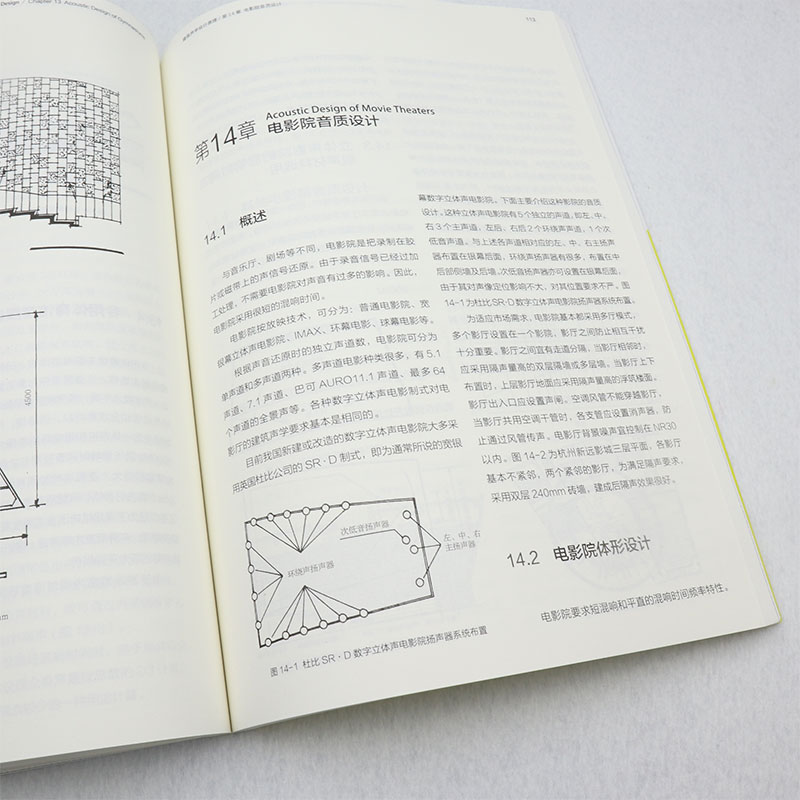 Design / Chapter 13 Acoustic Design of Gymnasiums
4500
mm
建筑声学设计原理 / 第14章 电影院音质设计
113
Acoustic Design of Movie Theaters
第14章 电影院音质设计
14.1 概述
与音乐厅、剧场等不同，电影院是把录制在胶
片或磁带上的声信号还原。由于录音信号已经过加
工处理，不需要电影院对声音有过多的影响。因此，
电影院采用很短的混响时间。
电影院按放映技术，可分为：普通电影院、宽
银幕立体声电影院、IMAX、环幕电影、球幕电影等。
根据声音还原时的独立声道数，电影院可分为
单声道和多声道两种。多声道电影种类很多，有 5.1
声道、7.1 声道、巴可 AURO11.1 声道、最多 64
个声道的全景声等。各种数字立体声电影制式对电
影厅的建筑声学要求基本是相同的。
目前我国新建或改造的数字立体声电影院大多采
用英国杜比公司的 SR · D 制式，即为通常所说的宽银
次低音扬声器
左、中、右
主扬声器
环绕声扬声器
图 14-1 杜比 SR · D 数字立体声电影院扬声器系统布置
幕数字立体声电影院。下面主要介绍这种影院的音质
设计。这种立体声电影院有 5 个独立的声道，即左、中、
右 3 个主声道，左后、右后 2 个环绕声声道，1 个次
低音声道。与上述各声道相对应的左、中、右主扬声
器布置在银幕后面，环绕声扬声器有很多，布置在中
后部侧墙及后墙，次低音扬声器亦可设置在银幕后面，
由于其对声像定位影响不大，对其位置要求不严。图
14-1 为杜比 SR·D 数字立体声电影院扬声器系统布置。
为适应市场需求，电影院基本都采用多厅模式，
多个影厅设置在一个影院，影厅之间防止相互干扰
十分重要。影厅之间宜有走道分隔，当影厅相邻时，
应采用隔声量高的双层隔墙或多层墙。当影厅上下
布置时，上层影厅地面应采用隔声量高的浮筑楼面。
影厅出入口应设置声闸。空调风管不能穿越影厅，
当影厅共用空调干管时，各支管应设置消声器，防
止通过风管传声。电影厅背景噪声宜控制在 NR30
以内。图 14-2 为杭州新远影城三层平面，各影厅
基本不紧邻，两个紧邻的影厅，为满足隔声要求，
采用双层 240mm 砖墙，建成后隔声效果很好。
14.2 电影院体形设计
电影院要求短混响和平直的混响时间频率特性。